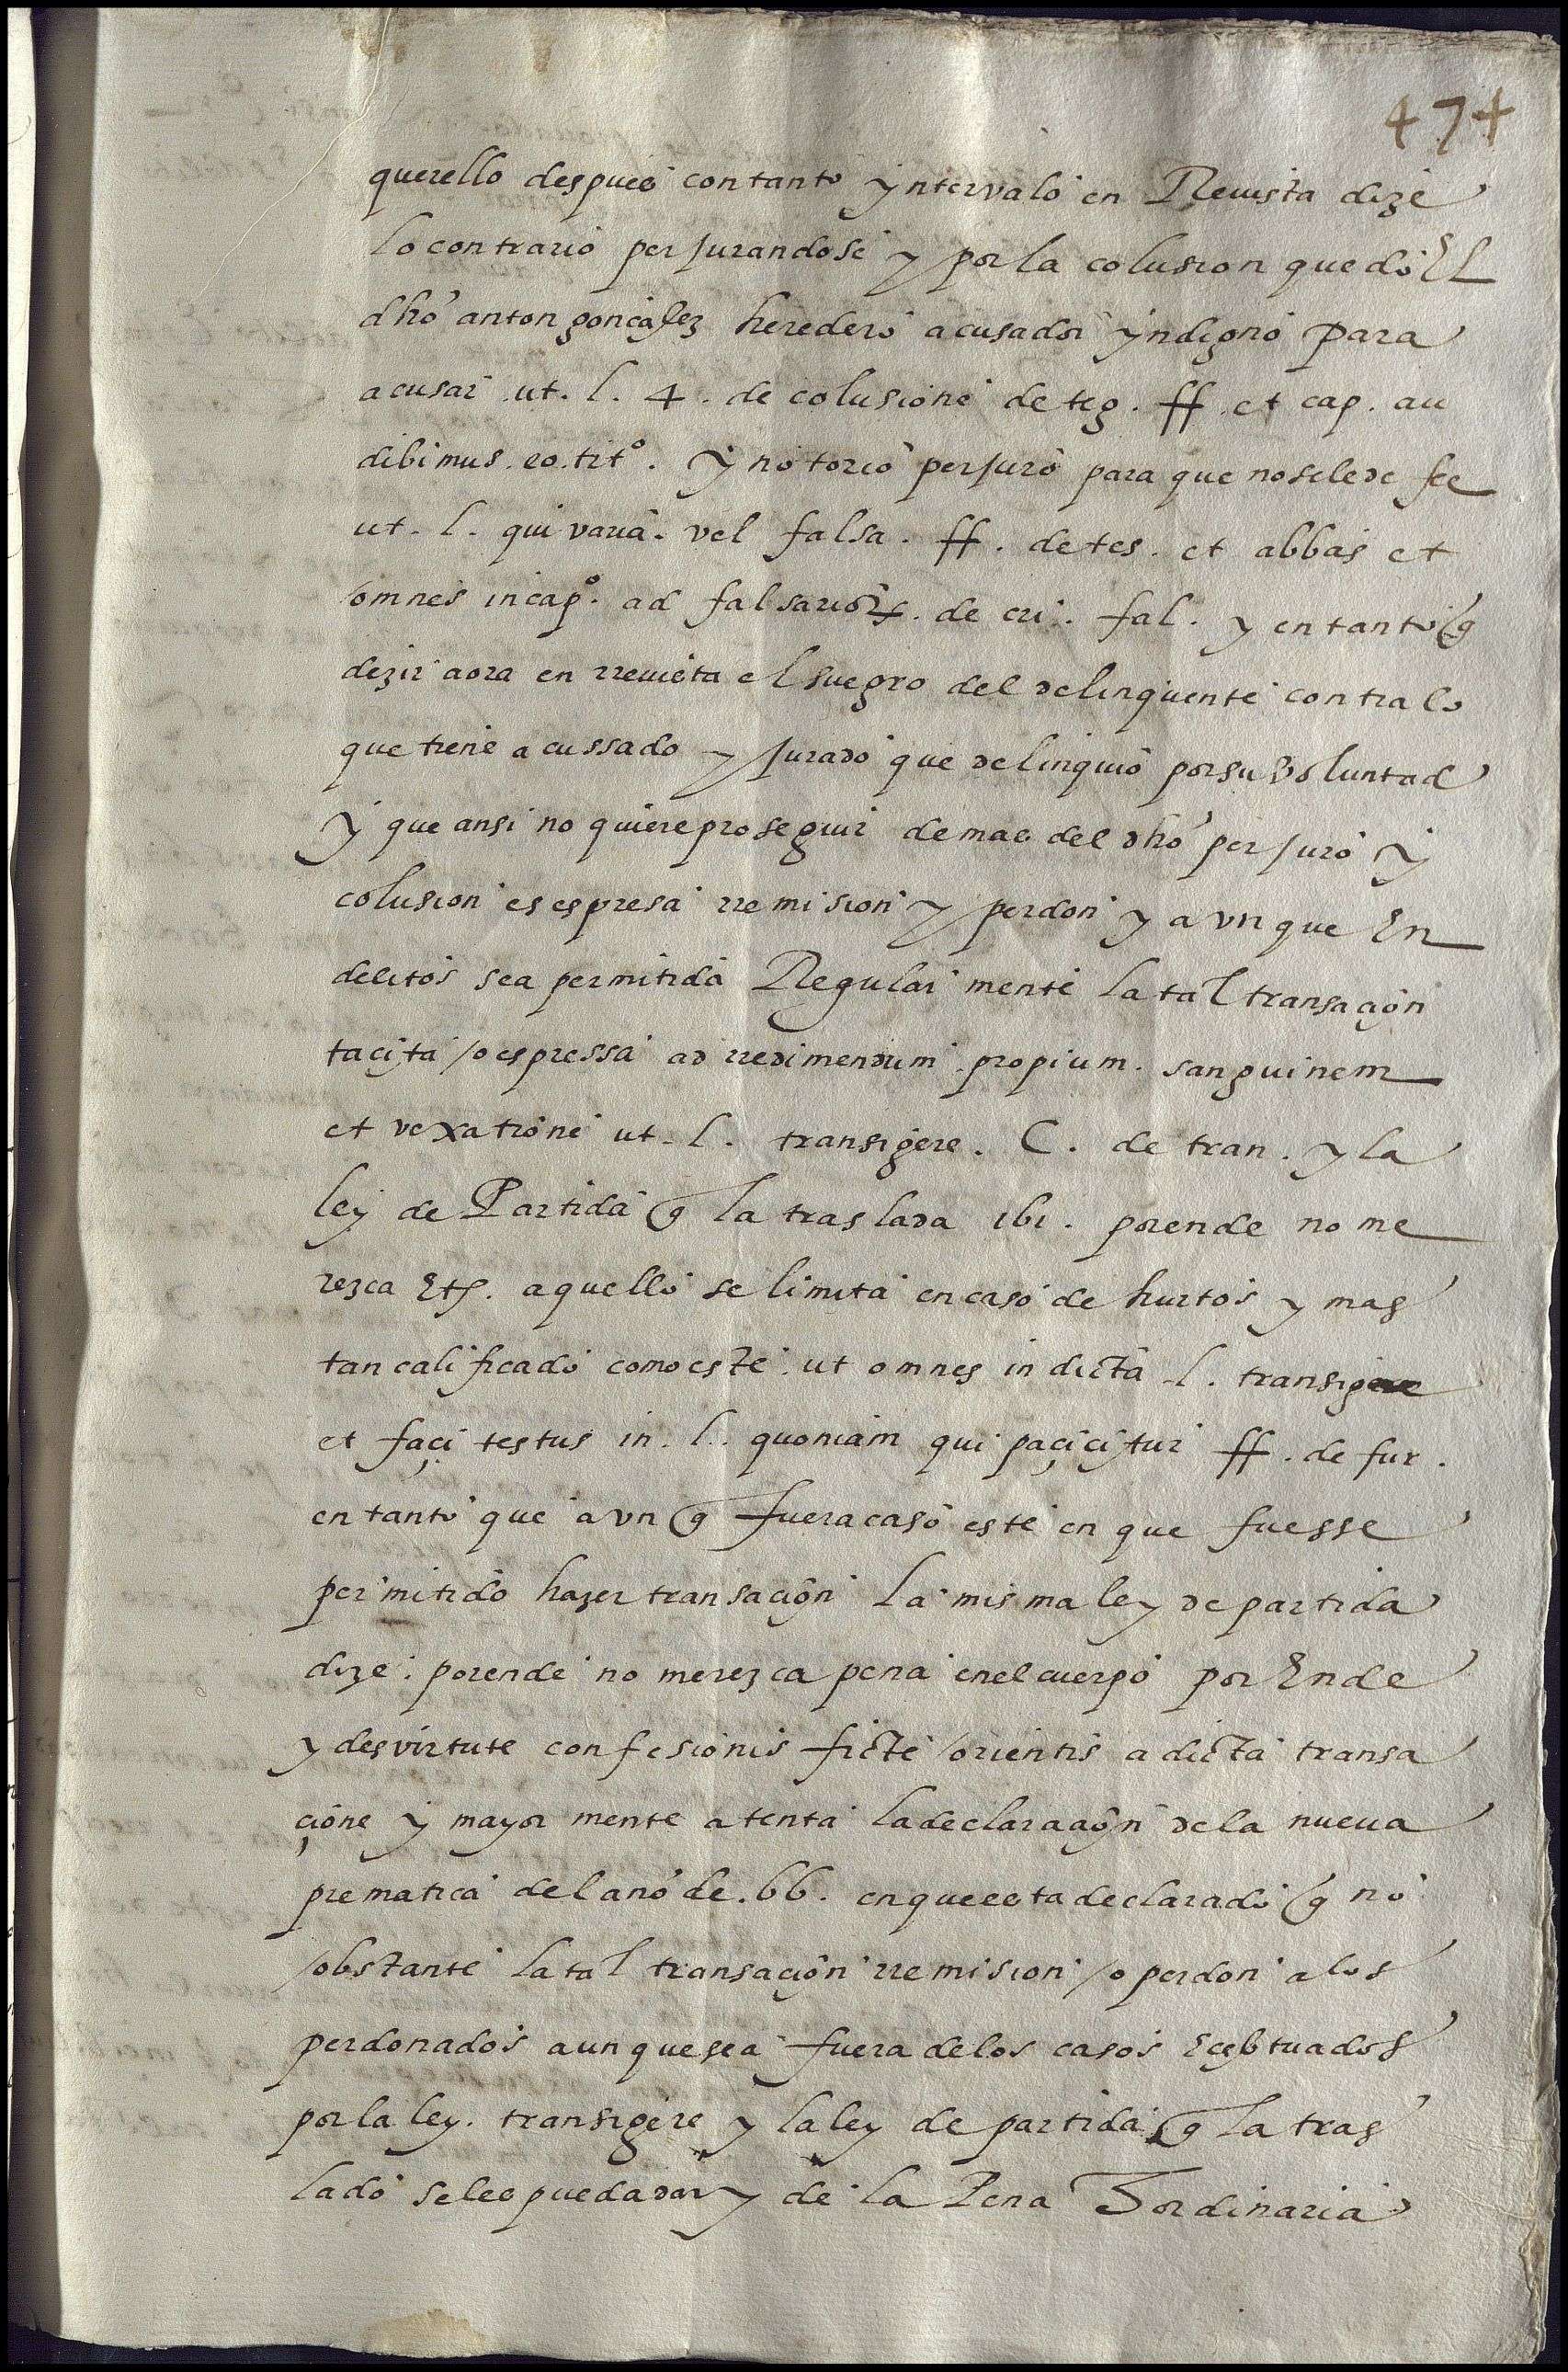 474
querello despues con tanto yntervalo en Revista dize
lo contrario perjurandose y por la colusion quedo El
dho anton gonçalez heredero acusador yndigno para
acusar .ut. l. 4. de colusione deteg. ff. et cap. au
dibimus. eo. tito. y notorio perjuro para que no se le de fee
ut. l. qui varia. vel falsa. ff. de tes. et abbas et
omnes in capo. ad falsariorum. de cri. fal. y en tanto q
dezir aora en rrevista el suegro del delinquente contra lo
que tiene acussado y jurado que delinquio por su voluntad
y que ansi no quiere proseguir de mas del dho perjuro y
colusion es espresa rremision y perdon y avnque En
delitos sea permitida Regular mente la tal transaçion
taçita o espressa ad rredimendum propium. sanguinem
et vexatione ut. l. transigere. C. de tran. y la
ley de Partida q la traslada ibi. porende no me
rezca Etc. aquello se limita en caso de hurtos y mas
tan calificado como este. ut omnes in dicta l. transigere
et façi testus in. l. quoniam qui paçiçitur ff. de fur.
en tanto que avn q fuera caso este en que fuesse
permitido hazer transaçion la misma ley de partida
dize. porende no merezca pena en el cuerpo por Ende
y des virtute confesionis ficte orientis a dicta transa
çione y mayor mente atenta la declaraçion de la nueva
prematica del año de .66. en que esta declarado q no
obstante la tal transaçion rremision o perdon a los
perdonados aunque sea fuera de los casos Eçebtuados
por la ley. transigere y la ley de partida q la tras
lado se les pueda dar y de la Pena Hordinaria